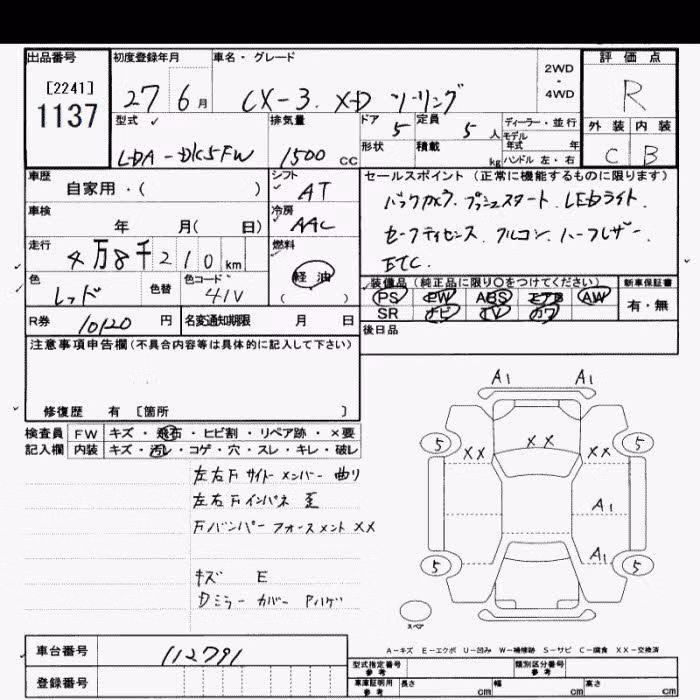 出品番号 初度登録年月 車名・グレード 2WD・4WD 評価点
[2241]
1137
27 6月 CX-3 XD ツーリング R
型式 排気量 ドア 定員 ディーラー・並行 外装 内装
5 5人 モデル年式 年
LDA-DK5FW 1500CC 形状 積載 kg ハンドル 左・右 C B
車歴 シフト セールスポイント(正常に機能するものに限ります)
自家用・( ) AT
バックカメラ. プッシュスタート. LEDライト
車検 年 月(日) 冷房 AAC
セーフティセンス. アルコン. ハーフレザー.
走行 4万8千210km 燃料 軽油 ( )
ETC.
色 レッド 色替 色コード 41V
装備品(純正品に限り○をつけてください) 新車保証書
PS PW ABS エアB AW 有・無
SR ナビ TV カワ
R券 10120円 名変通知期限 月 日
後日品
注意事項申告欄(不具合内容等は具体的に記入して下さい)
修復歴 有 [箇所 ]
検査員 FW キズ・飛石・ヒビ割・リペア跡・×要
記入欄 内装 キズ・汚レ・コゲ・穴・スレ・キレ・破レ
左右Fサイドメンバー曲り
左右Fインパネ歪
FバンパーフォースメントXX
キズ E
Dミラーカバー Pハゲ
A1 A1
5 XX XX XX 5
A1
A1
5 5
スペア
A-キズ E-エクボ U-凹み W-補修跡 S-サビ C-腐食 XX-交換済
車台番号 112791
型式指定番号 参考 類別区分番号 参考
登録番号
車庫証明用 参考 長さ cm 幅 cm 高さ cm